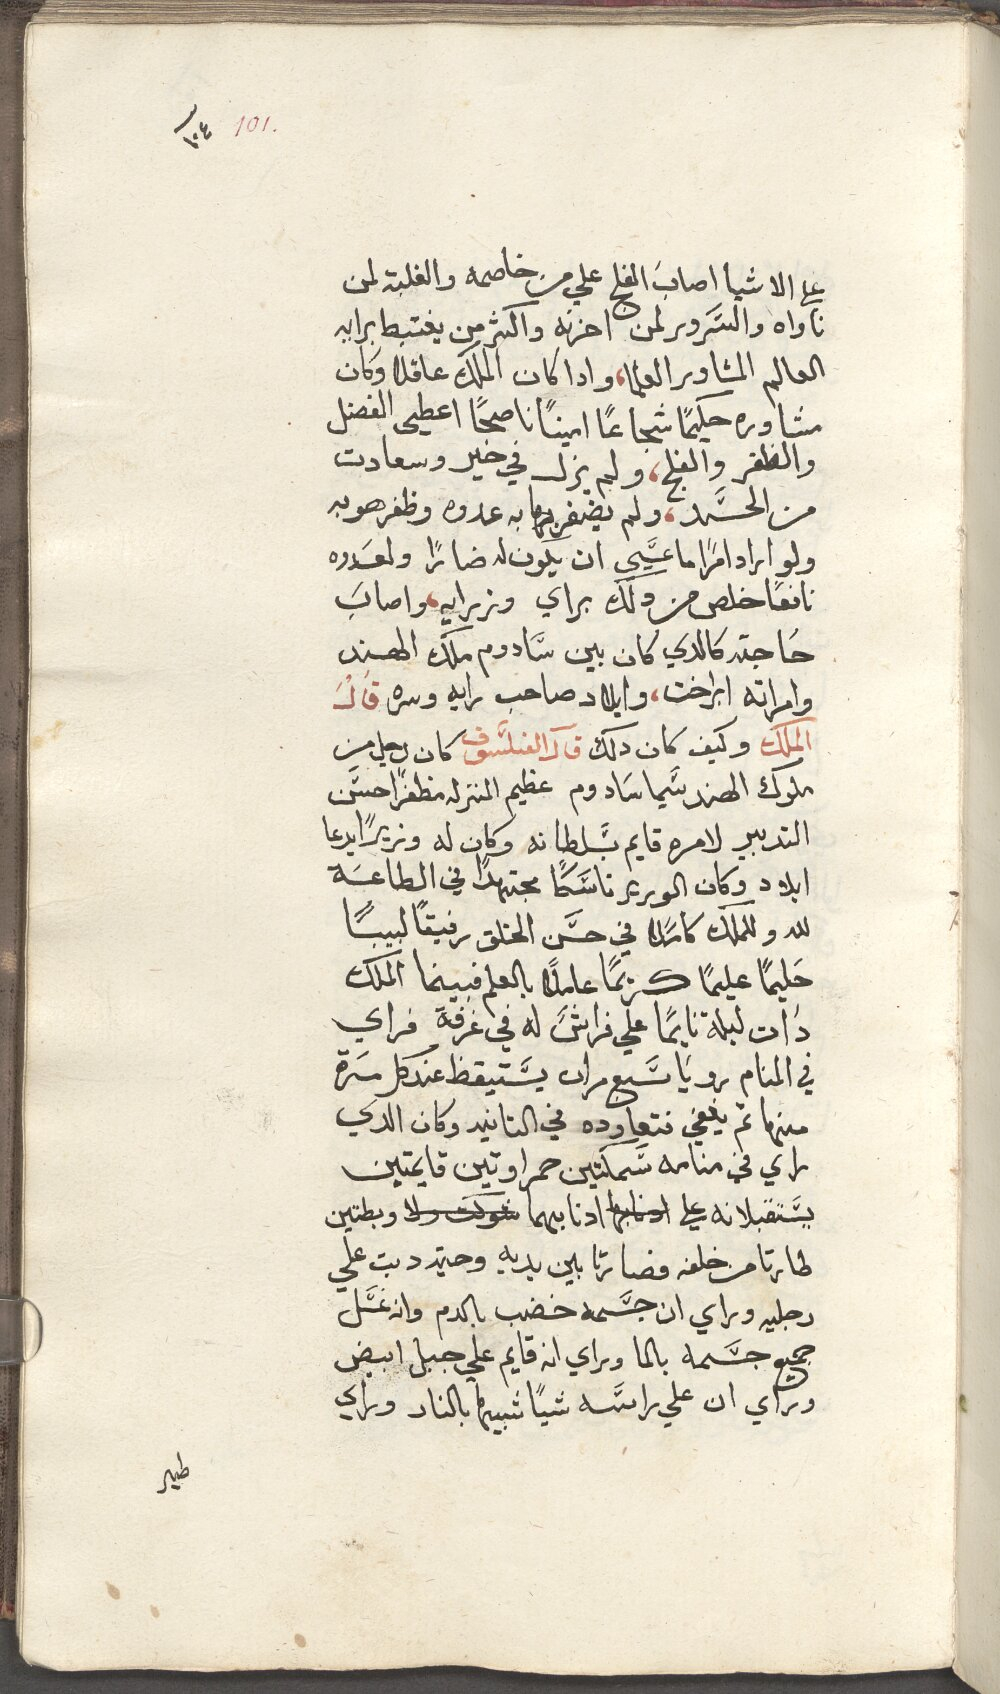 ١٠٤ 101.
علي الاشيا اصاب الفلج علي من خاصمه والغلبة لمن
ناواه والسرور لمن احزنه واكثر من يغتبط برايه
العالم المشاور العلما، وادا كان الملك عاقلا وكان
مشاوره حكيمًا شجاعًا امينًا ناصحًا اعطي الفضل
والظفر والفلج، ولم يزل في خير وسعادت
من الحسد، ولم يضفر به عدوه وظفر هو به
ولو اراد امرًا ما عسي ان يكون له ضارًا ولعدوه
نافعًا خلص من دلك براي وزرايه، واصاب
حاجته كالدي كان بين سادوم ملك الهند
وامراته ابراخت، وابلاد صاحب رايه وسره قال
الملك وكيف كان دلك قال الفيلسوف كان رجل من
ملوك الهند سيما سادوم عظيم المنزله مظفرًا حسن
التدبير لامره قايم بسلطانه وكان له وزيرًا يدعا
ابلاد وكان الوزير ناسكًا مجتهدًا في الطاعة
لله وللملك كاملا في حسن الخلق رفيقًا لبيبًا
حليمًا عليمًا كريمًا عاملًا بالعلم فبينما الملك
دات ليلة نايمًا علي فراش له في غرفة فراي
في المنام رويا سبع مرات يستيقظ عند كل مرة
منها تم يغفي فتعاوده في التانيه وكان الدي
راي في منامه سمكتين حمراوتين قايمتين
يستقبلانه علي ادنابها ادنابهما شوكت ولا وبطتين
طارتا من خلفه فصارتا بين يديه وحية دبت علي
رجليه وراي ان جسمه خضب بالدم وانه غسل
جميع جسمه بالما وراي انه قايم علي جبل ابيض
وراي ان علي راسه شيًا شبيها بالنار وراي
طير